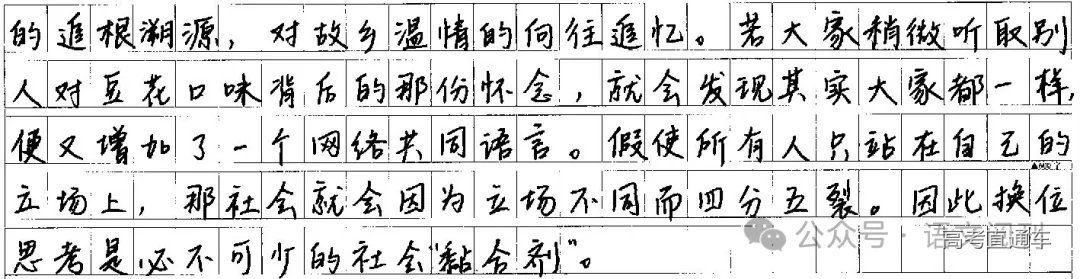 的追根溯源，对故乡温情的向往追忆。若大家稍微听取别
人对豆花口味背后的那份怀念，就会发现其实大家都一样，
便又增加了一个网络共同语言。假使所有人只站在自己的
立场上，那社会就会因为立场不同而四分五裂。因此换位
思考是必不可少的社会“黏合剂”。
公众号·语
高考直通车